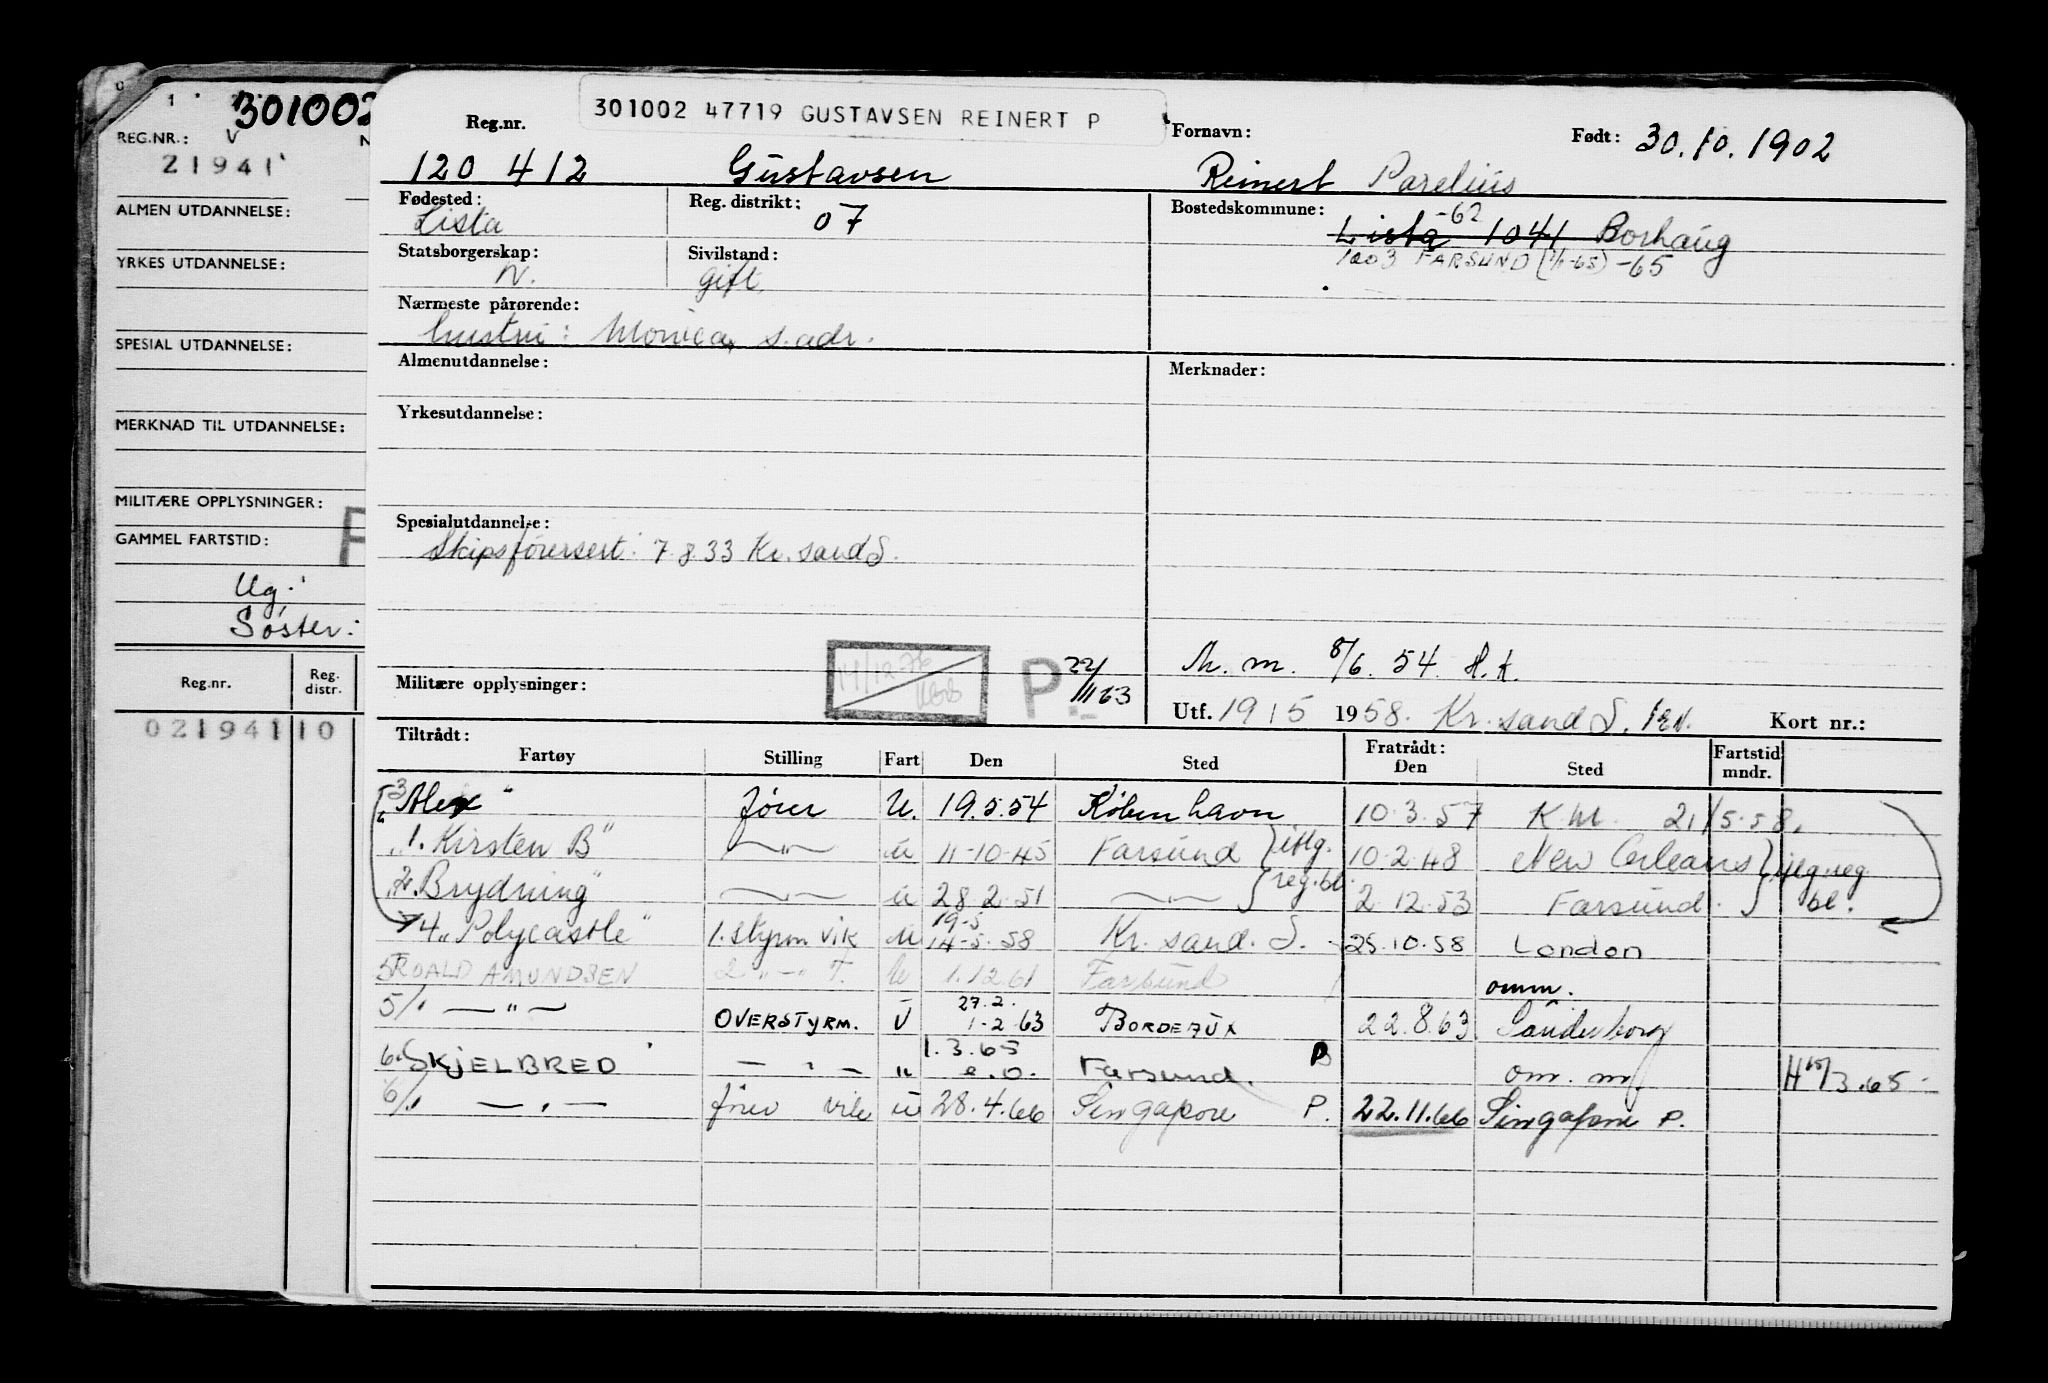 301002
REG.NR.: V
21941
ALMEN UTDANNELSE:
YRKES UTDANNELSE:
SPESIAL UTDANNELSE:
MERKNAD TIL UTDANNELSE:
MILITÆRE OPPLYSNINGER:
GAMMEL FARTSTID:
Ug.:
Søster:
Reg.nr. Reg. distr.
021941 10
301002 47719 GUSTAVSEN REINERT P
Reg.nr. Fornavn: Født: 30.10.1902
120 412 Gustavsen Reinert Parelius
Fødested: Reg. distrikt: Bostedskommune:
Lista 07 Lista 1041 -62 Borhaug
Statsborgerskap: Sivilstand: 1003 FARSUND (1/1-65) -65
N. gift.
Nærmeste pårørende:
hustru: Monica, s. adr.
Almenutdannelse: Merknader:
Yrkesutdannelse:
Spesialutdannelse:
Skipsførersert: 7.8.33 Kr. sand S.
M. m. 8/6. 54. H.K.
Militære opplysninger: P. 22/11 63
Utf. 19/5 1958. Kr. sand S. Kort nr.:
Tiltrådt: Fratrådt: Fartstid
Fartøy Stilling Fart Den Sted Den Sted mndr.
3 "Alex" fører U. 19.5.54 København 10.3.57 K.M. 21/5.58.
"1. Kirsten B" —"— u 11-10-45 Farsund } iflg. 10.2.48 New Orleans } iflg. reg.
"2. Brydning" —"— u 28.2.51 —"— } reg.bl. 2.12.53 Farsund. } bl.
19-5
4 "Polycastle" 1. styrm vik u 14-5-58 Kr. sand. S. 25.10.58 London
5 ROALD AMUNDSEN 2 "—" T. U 1.12.61 Farsund omm.
27.2.
5/1 —"— OVERSTYRM. U 1-2-63 BORDEAUX 22.8.63 Sønderborg
1.3.65
6. SKJELBRED —"— " e.o. Farsund. P om. m. H 15/3.65
6/1 —"— fører vik u 28.4.66 Singapore P. 22.11.66 Singapore P.